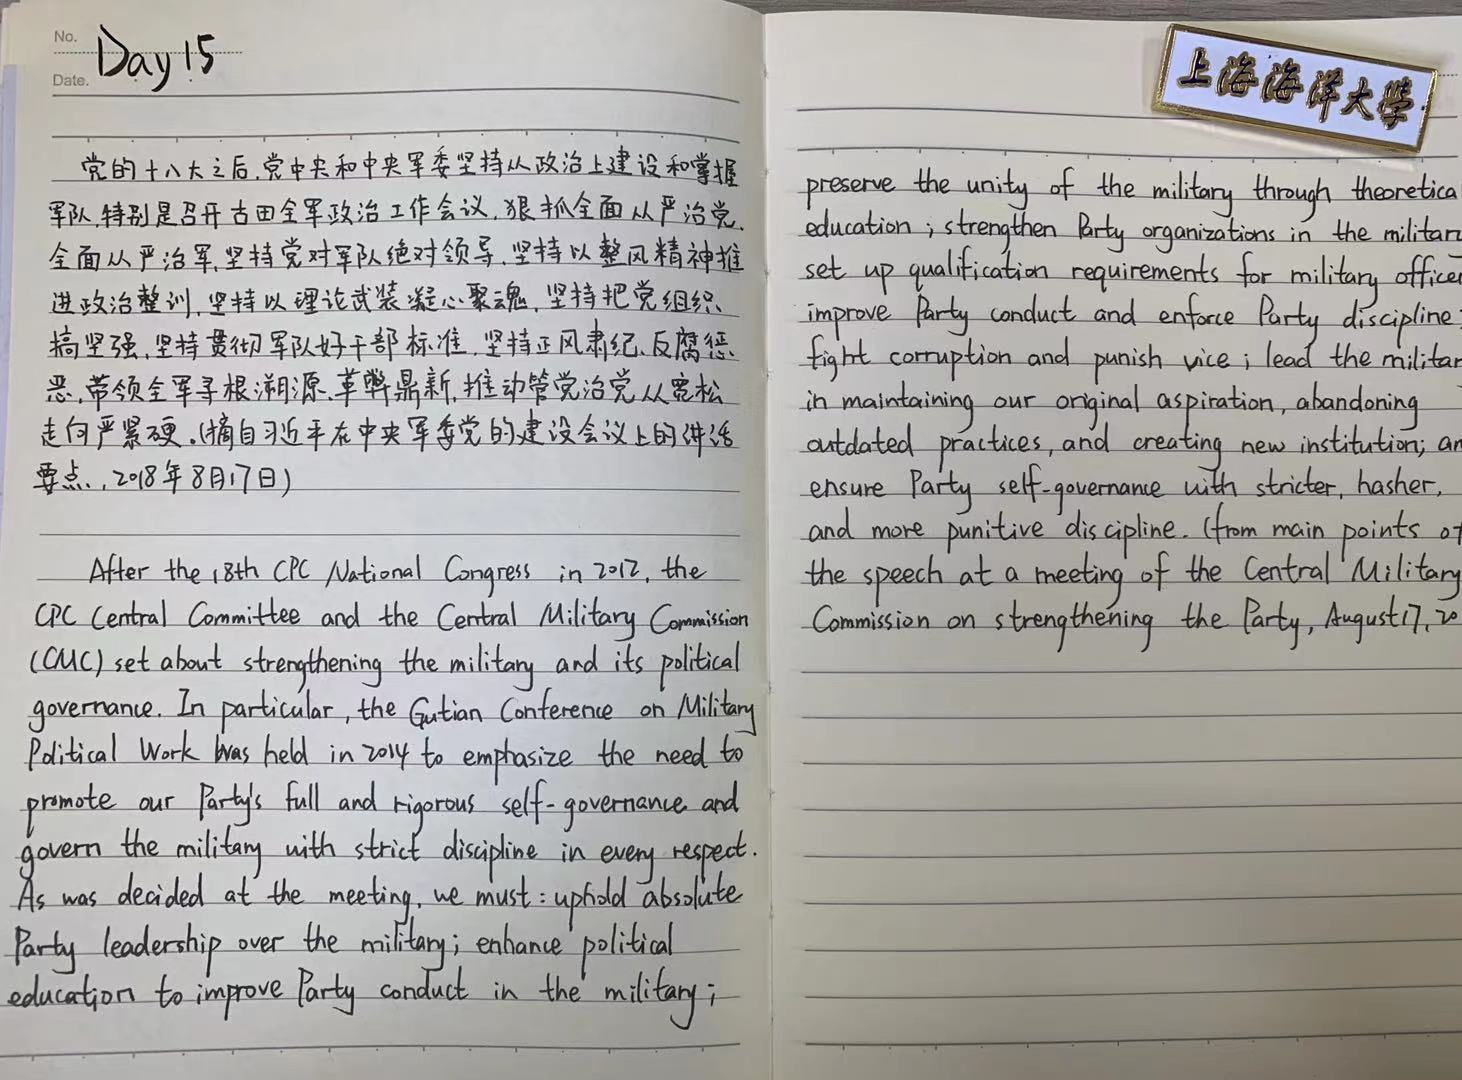 No.
Day 15
Date.
党的十八大之后,党中央和中央军委坚持从政治上建设和掌握
军队,特别是召开古田全军政治工作会议,狠抓全面从严治党、
全面从严治军,坚持党对军队绝对领导,坚持以整风精神推
进政治整训,坚持以理论武装凝心聚魂,坚持把党组织
搞坚强,坚持贯彻军队好干部标准,坚持正风肃纪、反腐惩
恶,带领全军寻根溯源、革弊鼎新,推动管党治党从宽松
走向严紧硬。(摘自习近平在中央军委党的建设会议上的讲话
要点,2018年8月17日)
After the 18th CPC National Congress in 2012, the
CPC Central Committee and the Central Military Commission
(CMC) set about strengthening the military and its political
governance. In particular, the Gutian Conference on Military
Political Work was held in 2014 to emphasize the need to
promote our Party's full and rigorous self-governance and
govern the military with strict discipline in every respect.
As was decided at the meeting, we must: uphold absolute
Party leadership over the military; enhance political
education to improve Party conduct in the military;
上海海洋大學
preserve the unity of the military through theoretica
education; strengthen Party organizations in the military
set up qualification requirements for military office
improve Party conduct and enforce Party discipline;
fight corruption and punish vice; lead the militar
in maintaining our original aspiration, abandoning
outdated practices, and creating new institution; an
ensure Party self-governance with stricter, hasher,
and more punitive discipline. (from main points of
the speech at a meeting of the Central Military
Commission on strengthening the Party, August 17, 20